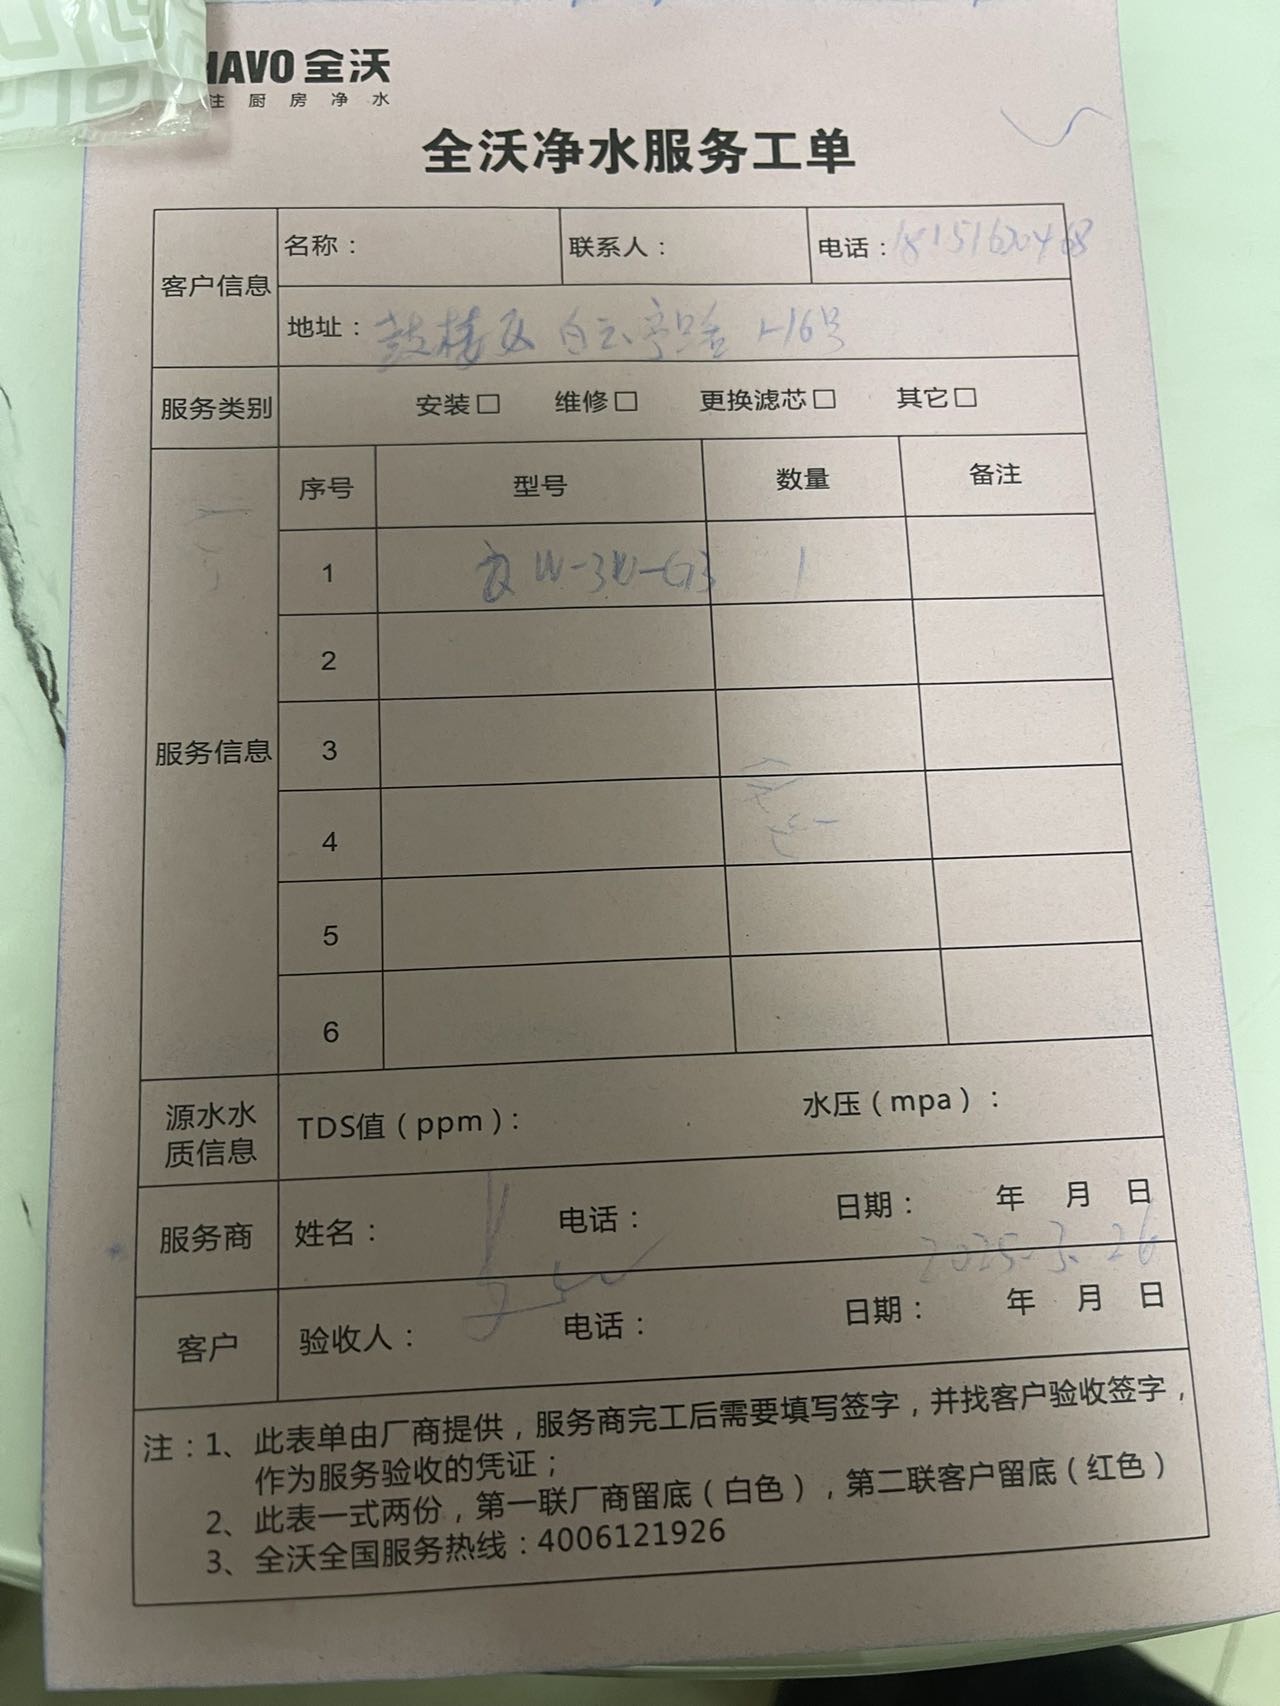 HAVO 全沃
注厨房净水
全沃净水服务工单
客户信息
名称：
联系人：
电话：18151620468
地址：鼓楼区 白云亭路 1-16号
服务类别
安装□ 维修□ 更换滤芯□ 其它□
服务信息
序号 型号 数量 备注
1 W-3W-G3 1
2
3
4
5
6
源水水质信息
TDS值（ppm）：
水压（mpa）：
服务商
姓名：
电话：
日期： 年 月 日
2025.3.26
客户
验收人：
电话：
日期： 年 月 日
注：1、此表单由厂商提供，服务商完工后需要填写签字，并找客户验收签字，
作为服务验收的凭证；
2、此表一式两份，第一联厂商留底（白色），第二联客户留底（红色）
3、全沃全国服务热线：4006121926